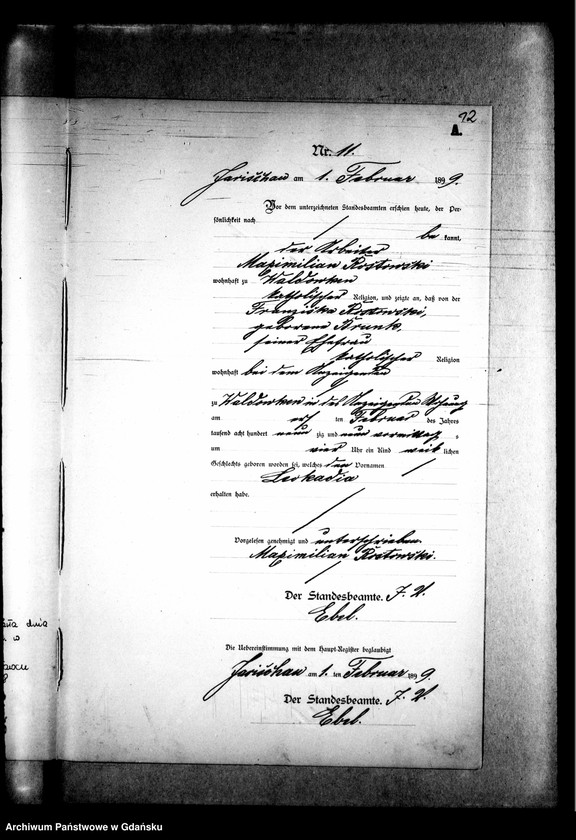 12
A.
Nr. 11.
Jarischau am 1. Februar 1899.
Vor dem unterzeichneten Standesbeamten erschien heute, der Per-
sönlichkeit nach
be kannt,
der Arbeiter
Maximilian Rostowski
wohnhaft zu Waldowken
katholischer Religion, und zeigte an, daß von der
Franziska Rostowski,
geborene Krunk,
seiner Ehefrau
katholischer Religion
wohnhaft bei dem Anzeigenden
zu Waldowken in des Anzeigenden Wohnung
am ersten Februar des Jahres
tausend acht hundert neunzig und neun vormittags
um vier Uhr ein Kind weiblichen
Geschlechts geboren worden sei, welches den Vornamen
Leokadia
erhalten habe.
Vorgelesen, genehmigt und unterschrieben.
Maximilian Rostowski.
Der Standesbeamte. J. V.
Ebel.
Die Uebereinstimmung mit dem Haupt-Register beglaubigt
Jarischau am 1. ten Februar 1899.
Der Standesbeamte. J. V.
Ebel.
dnia
w
Archiwum Państwowe w Gdańsku